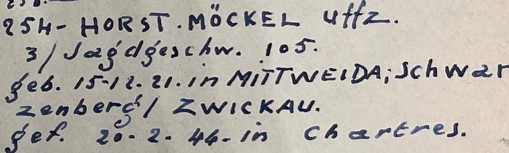 254- HORST. MÖCKEL Uffz.
3/Jagdgeschw. 105.
geb. 15-12. 21. in MITTWEIDA; Schwar
zenberg/ ZWICKAU.
gef. 20-2-44-in Chartres.